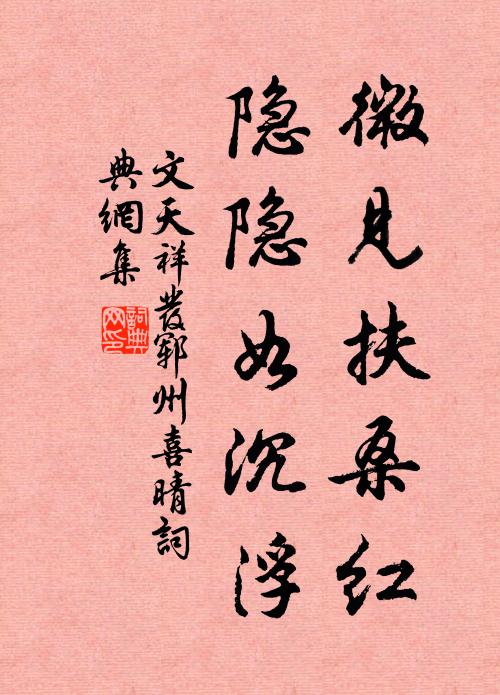 微見扶桑红
隐隐如沉浮
文天祥發鄆州喜晴詞
典網集
詞典
网印